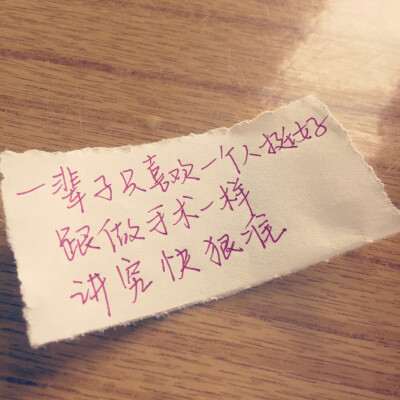 一辈子只喜欢一个人挺好
跟做手术一样
讲究快狠准